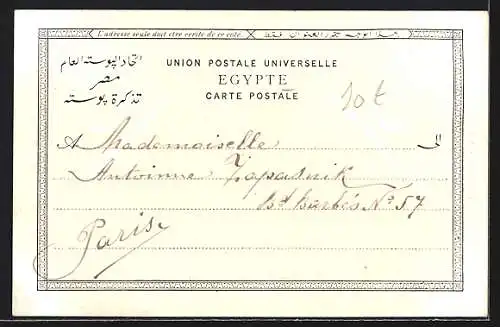 L'adresse seule doit être écrite de ce coté.
اتحاد البوسته العام
مصر
تذكرة بوسته
UNION POSTALE UNIVERSELLE
EGYPTE
CARTE POSTALE
10t
A Mademoiselle الى
Antoinne
Bd Barbés No 57
Paris